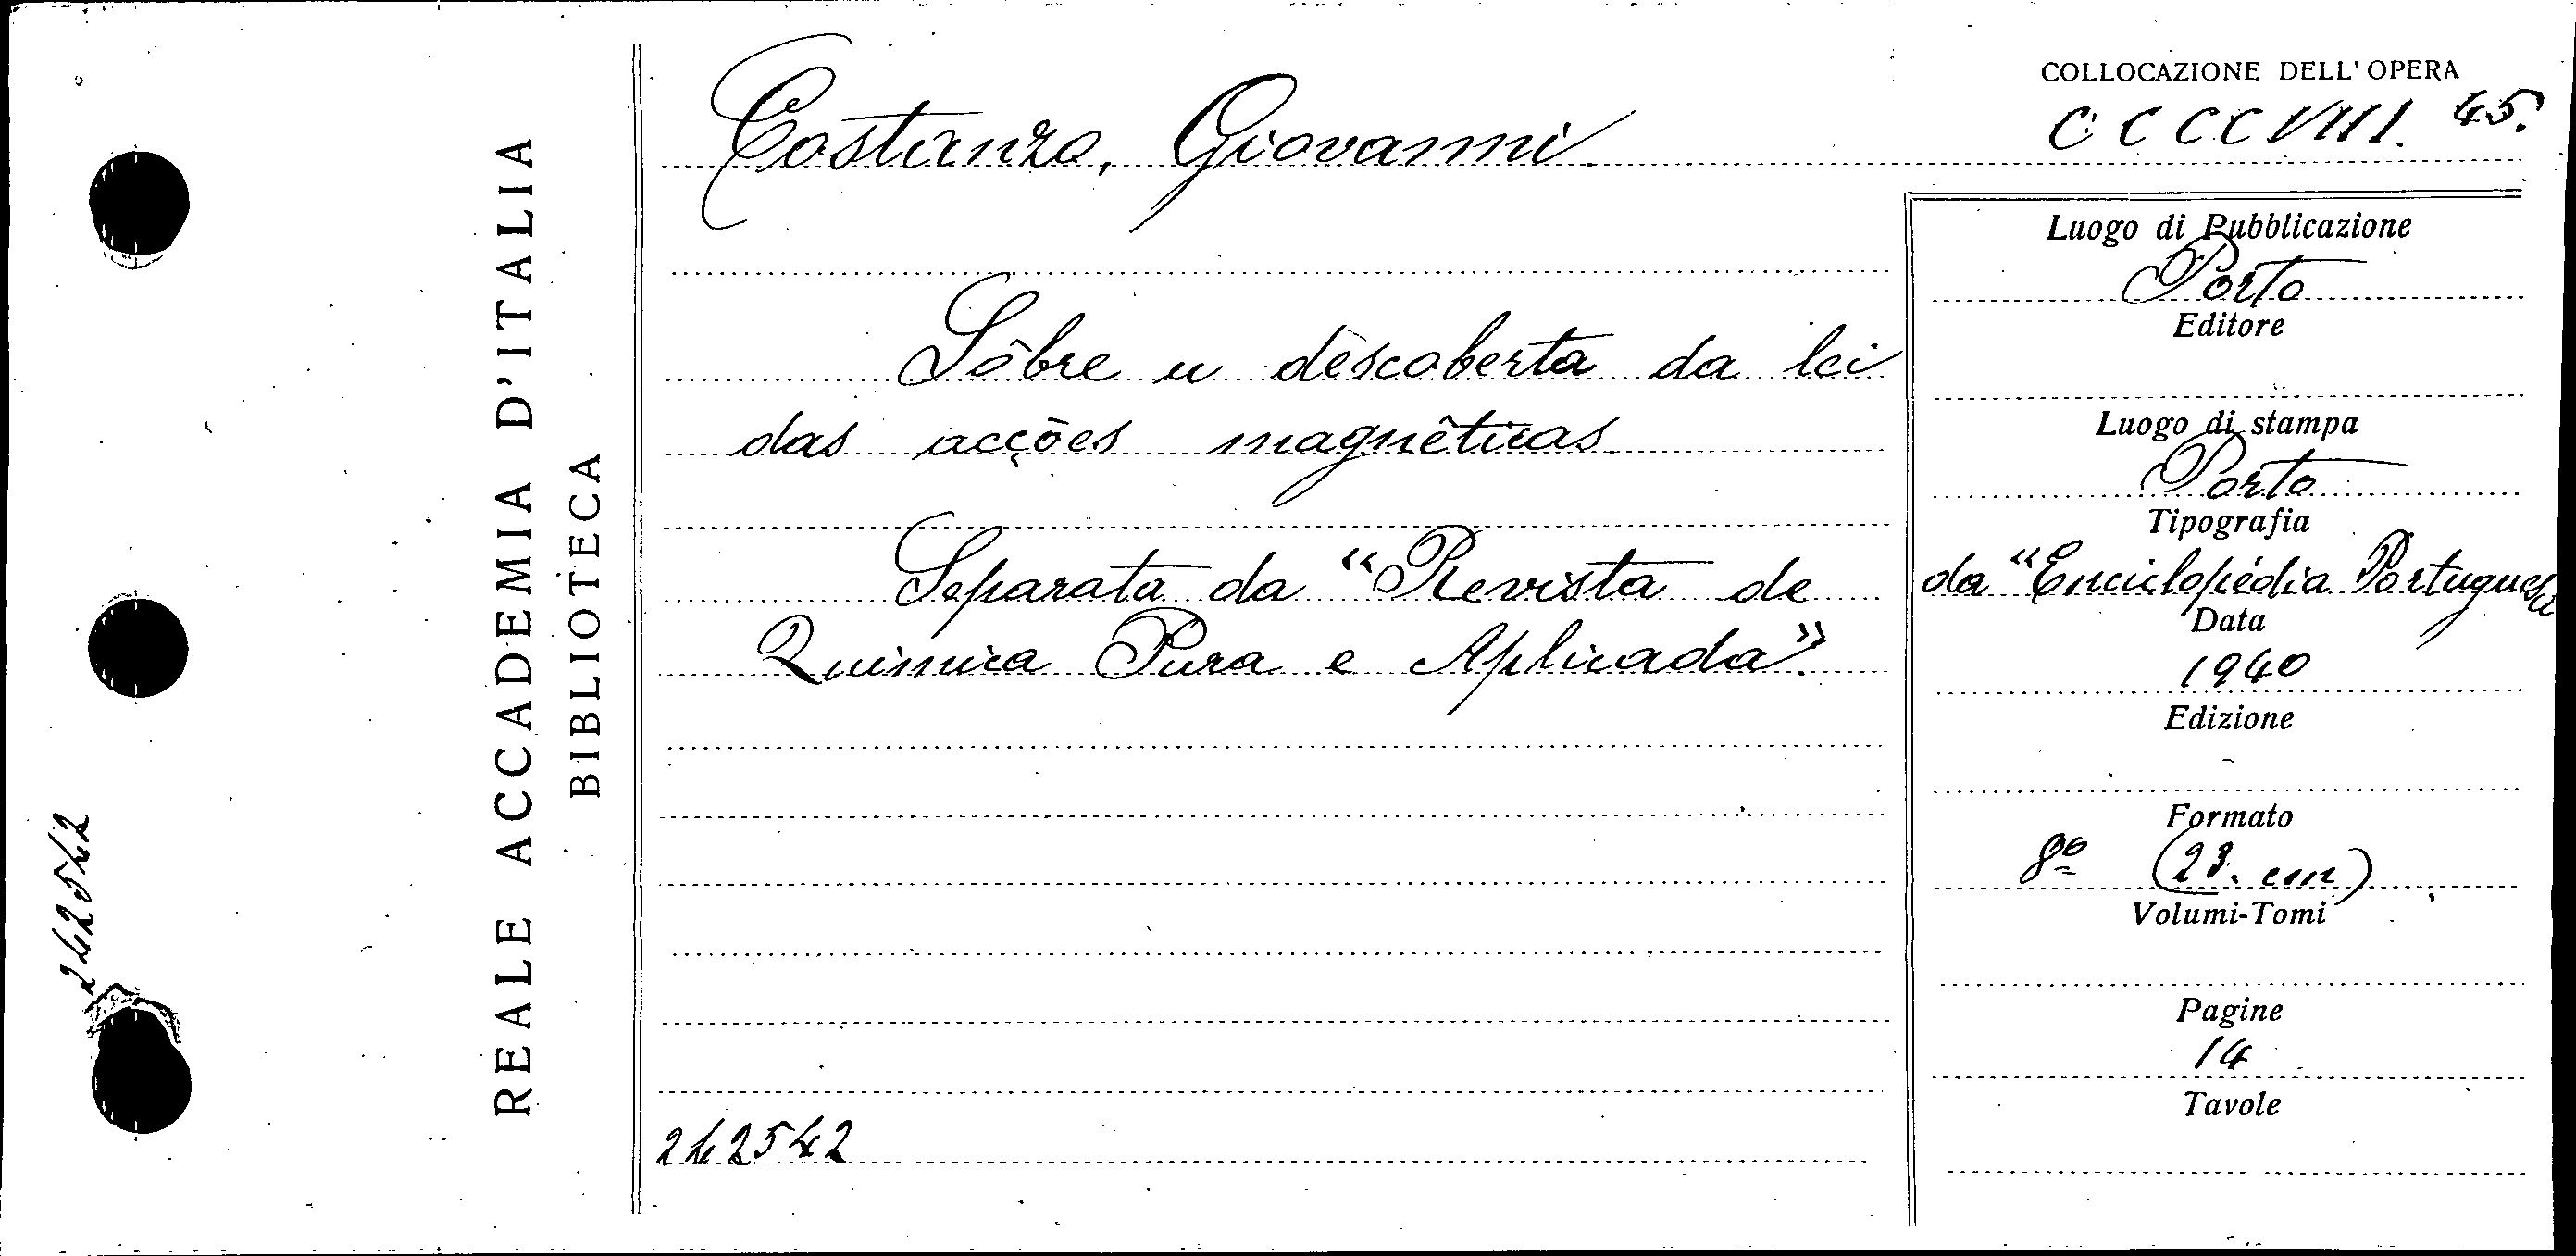 COLLOCAZIONE DELL'OPERA
CCCCVIII. 45.
Costanzo, Giovanni.
Sôbre a descoberta da lei
das acções magnêticas
Separata da "Revista de
Quimica Pura e Aplicada".
242542
Luogo di Pubblicazione
Porto
Editore
Luogo di stampa
Porto
Tipografia
da "Enciclopédia Portuguesa
Data
1940
Edizione
-
Formato
8º (23. cm)
Volumi-Tomi
Pagine
14
Tavole
REALE ACCADEMIA D'ITALIA
BIBLIOTECA
242542